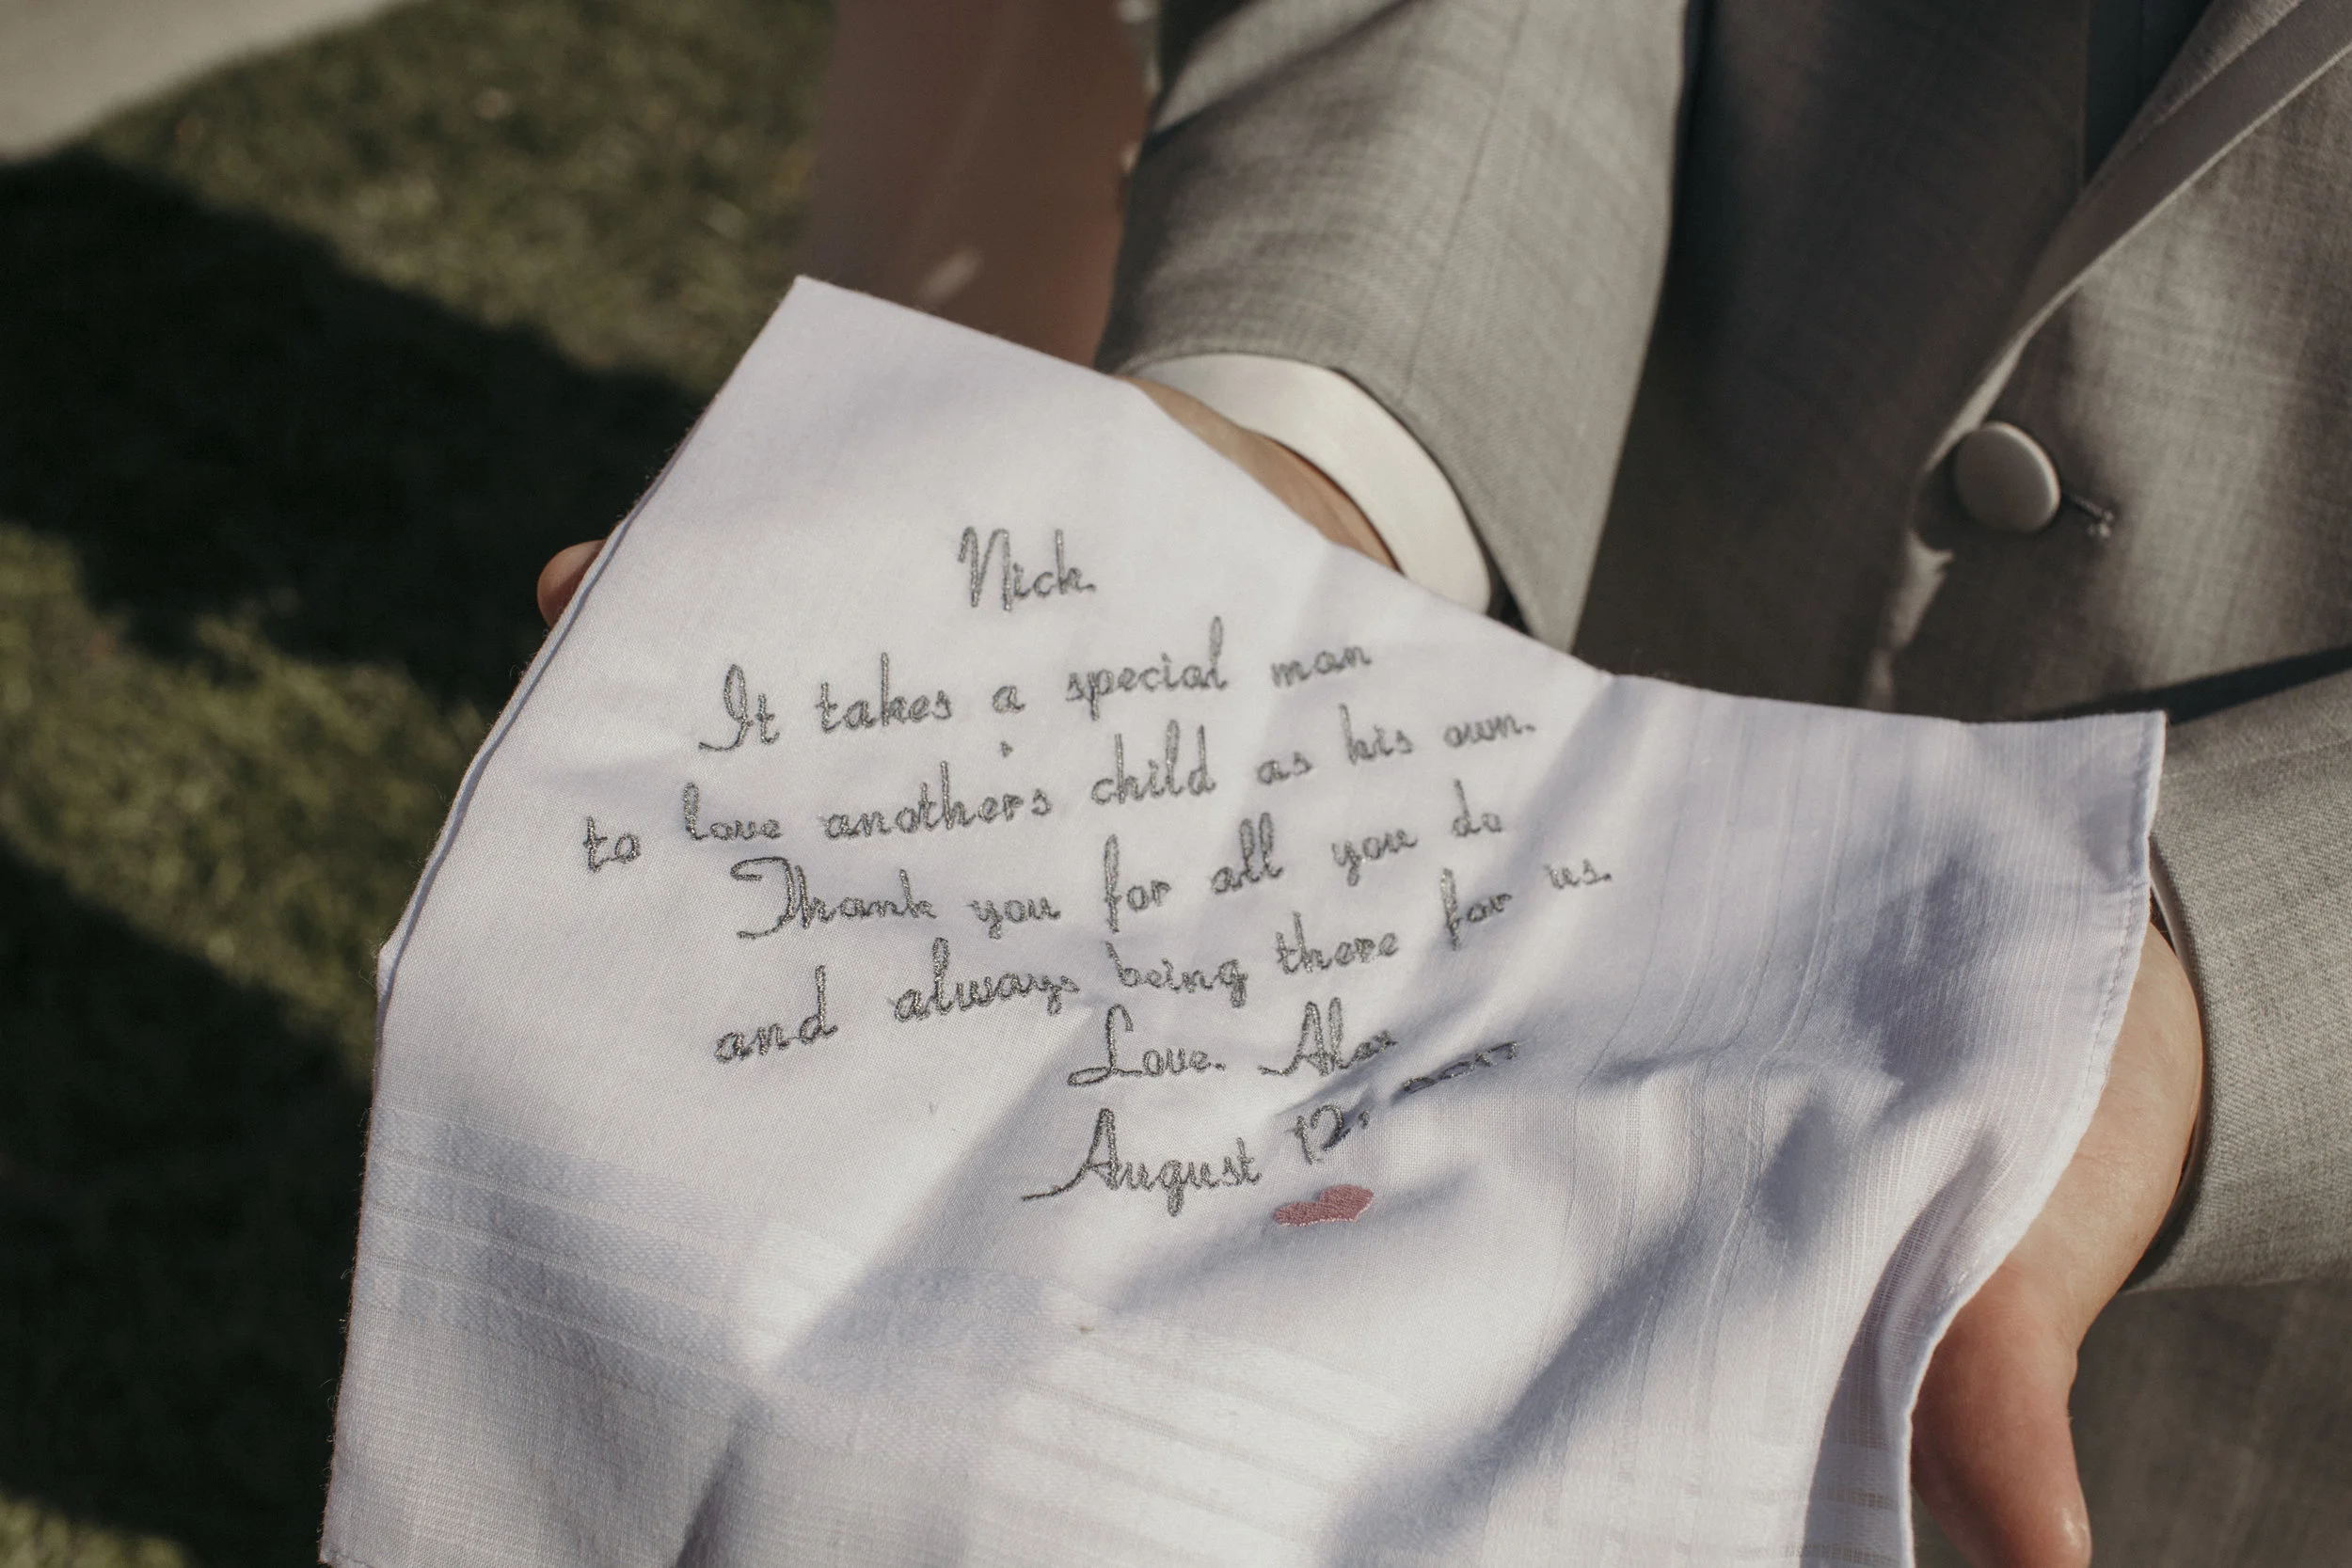 Nick.
It takes a special man
to love another's child as his own.
Thank you for all you do
and always being there for us.
Love. Alex
August 12,